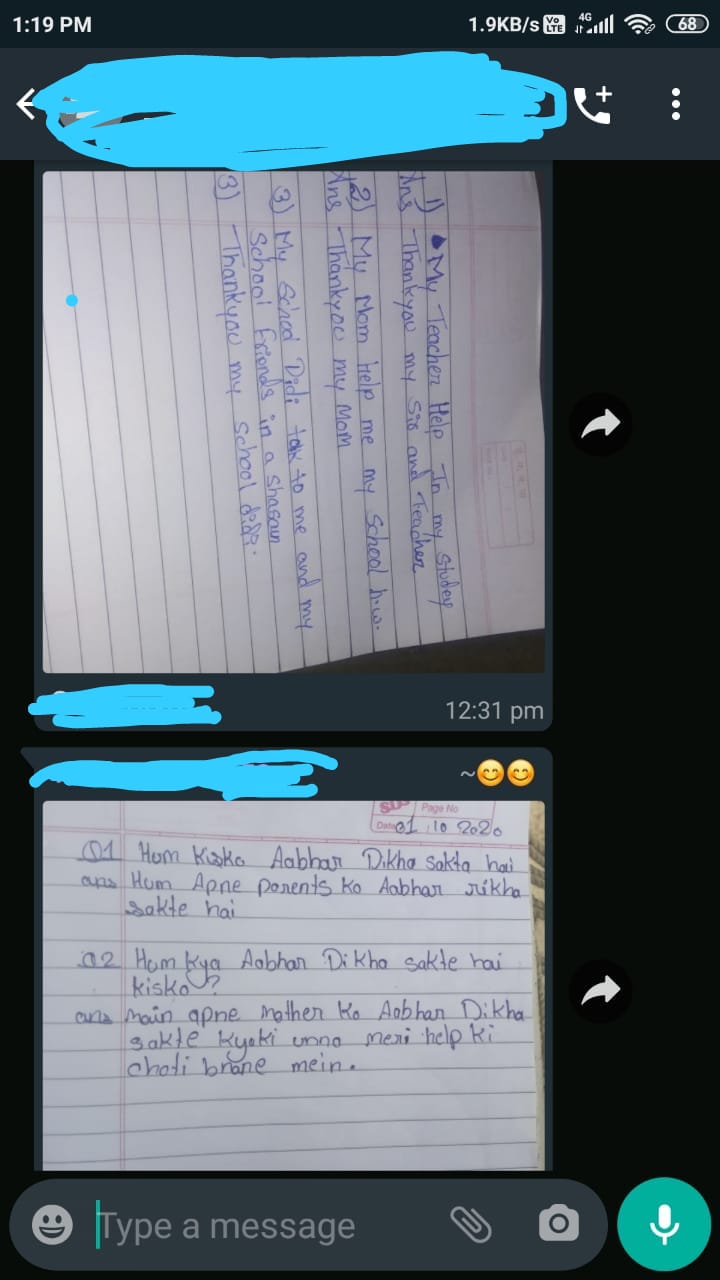 1:19 PM 1.9KB/s Vo LTE 4G 68
1) My Teacher Help In my studey
Ans Thankyou my Sir and Teacher
2) My Mom help me my School h.w.
Ans Thankyou my Mom
3) My School Didi tak to me and my
School friends in a shagaun
3) Thankyou my school didi.
12:31 pm
~😊😊
SUN Page No
Date 01 10 2020
Q1 Hum Kisko Aabhar Dikha sakta hai
ans Hum Apne parents ko Aabhar rikha
sakte hai
Q2 Hum kya Aabhar Dikha sakte hai
kisko?
ans main apne mother ko Aabhar Dikha
sakte kyoki unno meri help ki
choti brane mein.
Type a message